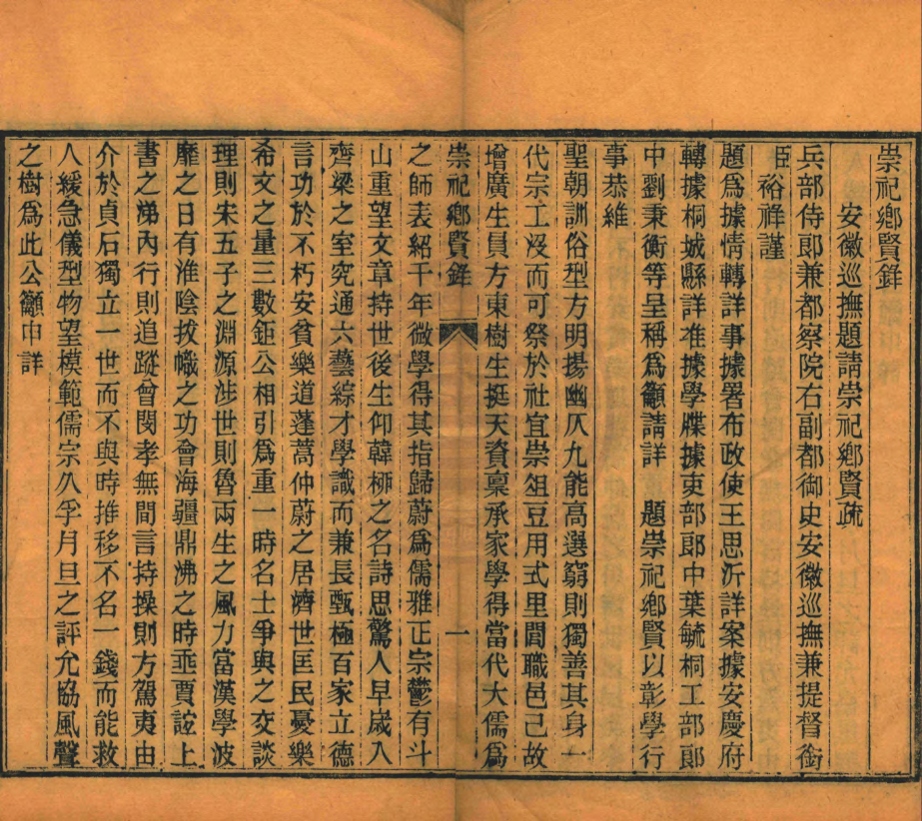 崇祀鄉賢錄
安徽巡撫題請崇祀鄉賢疏
兵部侍郎兼都察院右副都御史安徽巡撫兼提督銜
臣裕祥謹
題爲據情轉詳事據署布政使王思沂詳案據安慶府
轉據桐城縣詳准據學牒據吏部郎中葉毓桐工部郎
中劉秉衡等呈稱爲籲請詳 題崇祀鄉賢以彰學行
事恭維
聖朝訓俗型方明揚幽仄九能高選窮則獨善其身一
代宗工沒而可祭於社宜崇俎豆用式里閭職邑已故
增廣生員方東樹生挺天資稟承家學得當代大儒爲
崇祀鄉賢錄 一
之師表紹千年微學得其指歸蔚爲儒雅正宗鬱有斗
山重望文章持世後生仰韓柳之名詩思驚人早歲入
齊梁之室究通六藝綜才學識而兼長甄極百家立德
言功於不朽安貧樂道蓬蒿仲蔚之居濟世匡民憂樂
希文之量三數鉅公相引爲重一時名士爭與之交談
理則宋五子之淵源涉世則魯兩生之風力當漢學波
靡之日有淮陰拔幟之功會海疆鼎沸之時乖賈誼上
書之涕內行則追蹤曾閔孝無間言持操則方駕夷由
介於貞石獨立一世而不與時推移不名一錢而能救
人緩急儀型物望模範儒宗久孚月旦之評允協風聲
之樹爲此公籲申詳